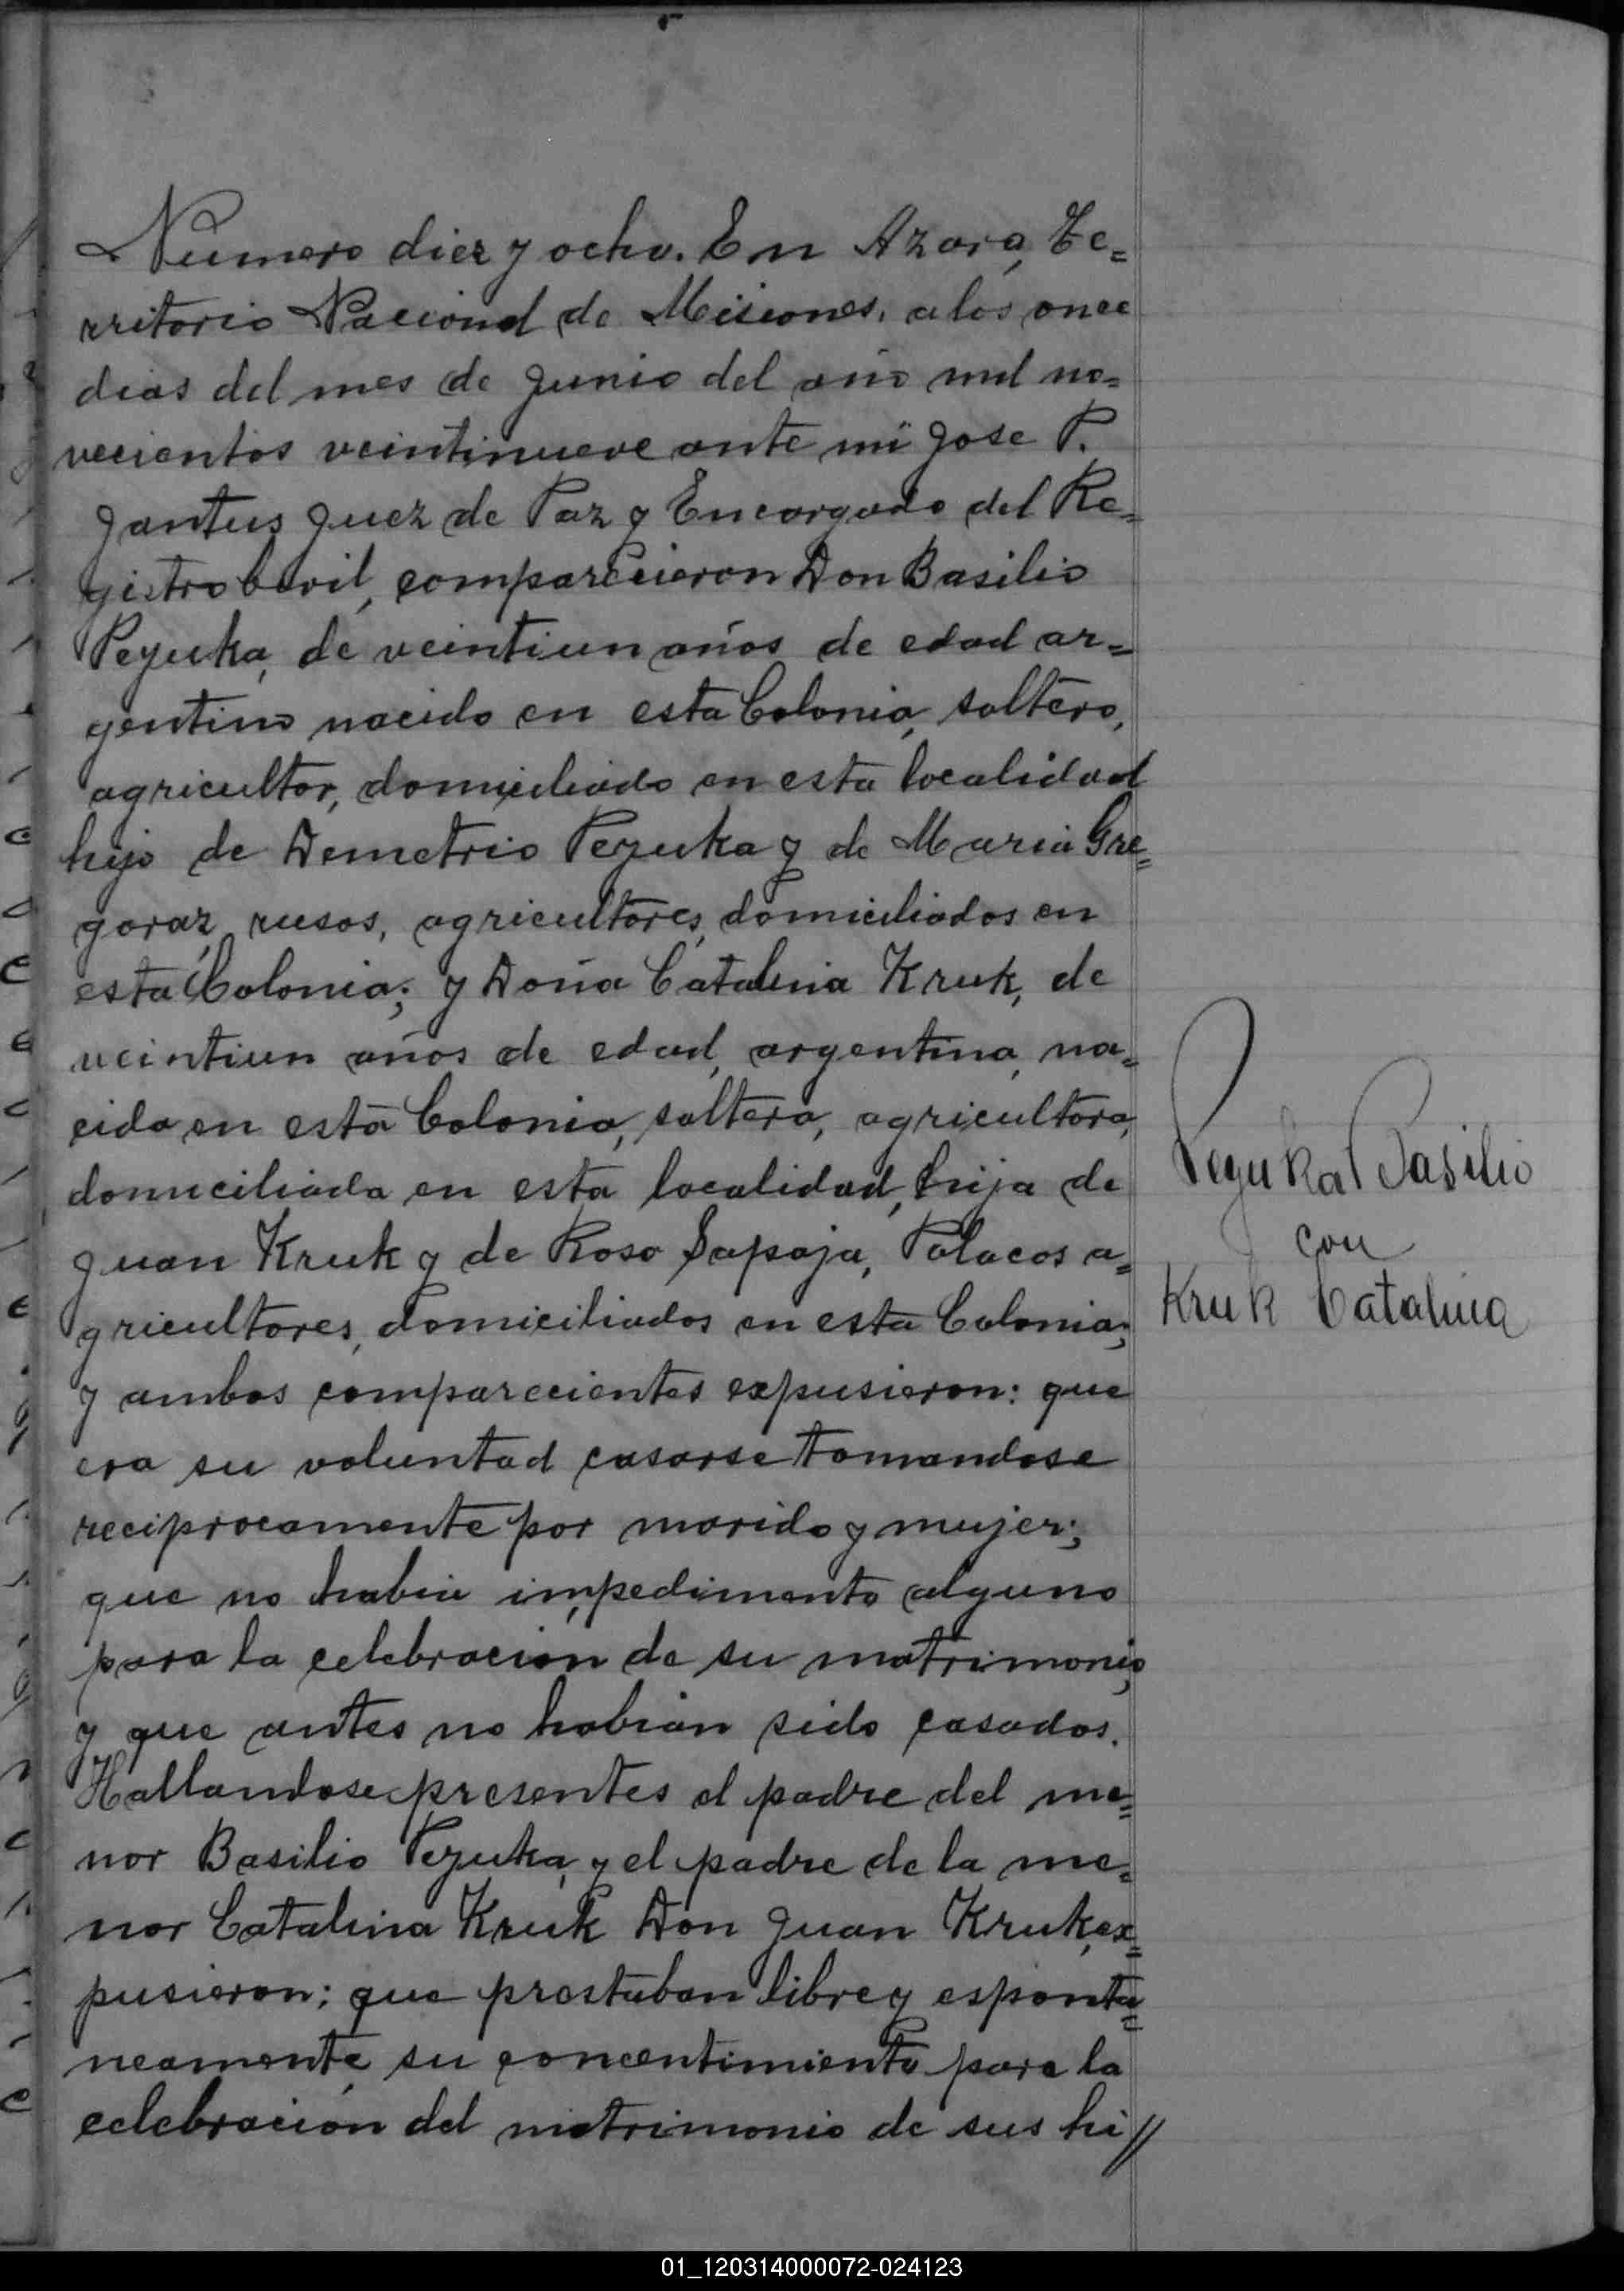 Numero diez y ocho. En Azara, Te=
rritorio Nacional de Misiones, a los once
dias del mes de Junio del año mil no=
vecientos veintinueve ante mi Jose P.
Jantus Juez de Paz y Encargado del Re=
gistro Civil, comparecieron Don Basilio
Peyuka, de veintiun años de edad ar=
gentino nacido en esta Colonia, soltero,
agricultor, domiciliado en esta localidad
hijo de Demetrio Peyuka y de Maria Gre=
goraz, rusos, agricultores, domiciliados en
esta Colonia; y Doña Catalina Kruk, de
veintiun años de edad, argentina, na=
cida en esta Colonia, soltera, agricultora,
domiciliada en esta localidad, hija de
Juan Kruk y de Rosa Sapaja, Polacos a=
gricultores, domiciliados en esta Colonia;
y ambos comparecientes expusieron: que
era su voluntad casarse tomandose
reciprocamente por marido y mujer;
que no habia impedimento alguno
para la celebracion de su matrimonio,
y que antes no habian sido casados.
Hallandose presentes el padre del me=
nor Basilio Peyuka, y el padre de la me=
nor Catalina Kruk Don Juan Kruk, ex=
pusieron: que prestaban libre y esponta=
neamente su concentimiento para la
celebracion del matrimonio de sus hi//
Peyuka Basilio
con
Kruk Catalina
01_120314000072-024123